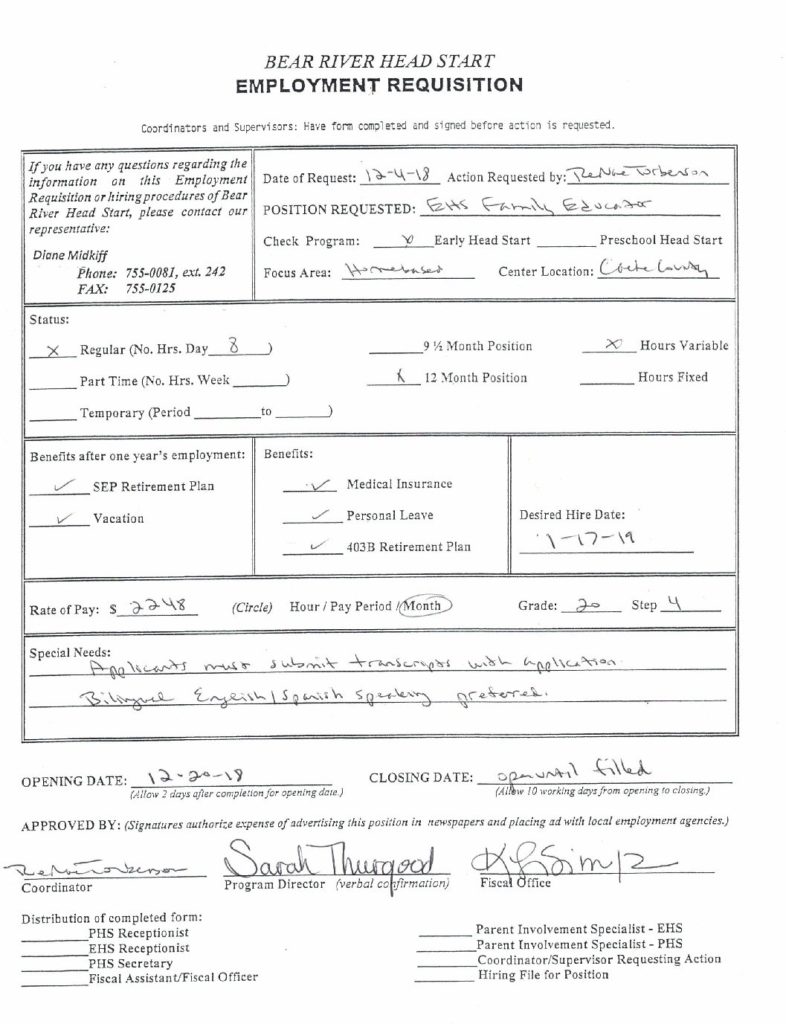 BEAR RIVER HEAD START
EMPLOYMENT REQUISITION
Coordinators and Supervisors: Have form completed and signed before action is requested.
If you have any questions regarding the
information on this Employment
Requisition or hiring procedures of Bear
River Head Start, please contact our
representative:
Diane Midkiff
Phone: 755-0081, ext. 242
FAX: 755-0125
Date of Request: 12-4-18 Action Requested by: ReNae Torbenson
POSITION REQUESTED: EHS Family Educator
Check Program: X Early Head Start ______ Preschool Head Start
Focus Area: Homebased Center Location: Cache County
Status:
X Regular (No. Hrs. Day 8 )
______ Part Time (No. Hrs. Week ______)
______ Temporary (Period ______ to ______)
______ 9 ½ Month Position
X 12 Month Position
X Hours Variable
______ Hours Fixed
Benefits after one year's employment:
✓ SEP Retirement Plan
✓ Vacation
Benefits:
✓ Medical Insurance
✓ Personal Leave
✓ 403B Retirement Plan
Desired Hire Date:
1-17-19
Rate of Pay: $ 2248 (Circle) Hour / Pay Period / Month Grade: 20 Step 4
Special Needs:
Applicants must submit transcripts with application.
Bilingual English/Spanish speaking preferred.
OPENING DATE: 12-20-18 CLOSING DATE: open until filled
(Allow 2 days after completion for opening date.) (Allow 10 working days from opening to closing.)
APPROVED BY: (Signatures authorize expense of advertising this position in newspapers and placing ad with local employment agencies.)
ReNae Torbenson Sarah Thurgood
Coordinator Program Director (verbal confirmation) Fiscal Office
Distribution of completed form:
______ PHS Receptionist
______ EHS Receptionist
______ PHS Secretary
______ Fiscal Assistant/Fiscal Officer
______ Parent Involvement Specialist - EHS
______ Parent Involvement Specialist - PHS
______ Coordinator/Supervisor Requesting Action
______ Hiring File for Position